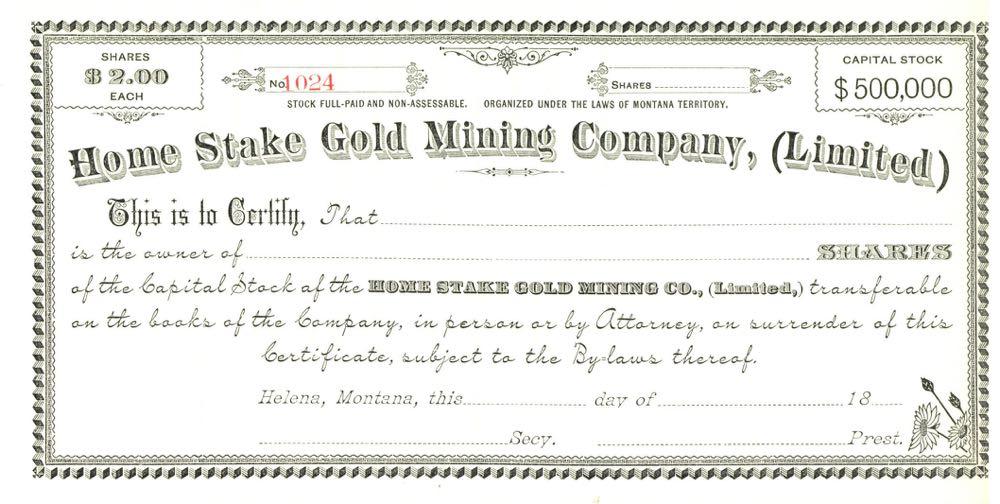 SHARES
$2.00
EACH
No. 1024
SHARES
CAPITAL STOCK
$500,000
STOCK FULL-PAID AND NON-ASSESSABLE. ORGANIZED UNDER THE LAWS OF MONTANA TERRITORY.
Home Stake Gold Mining Company, (Limited)
This is to Certify, That
is the owner of SHARES
of the Capital Stock of the HOME STAKE GOLD MINING CO., (Limited,) transferable
on the books of the Company, in person or by Attorney, on surrender of this
Certificate, subject to the By-laws thereof.
Helena, Montana, this day of 18
Secy. Prest.